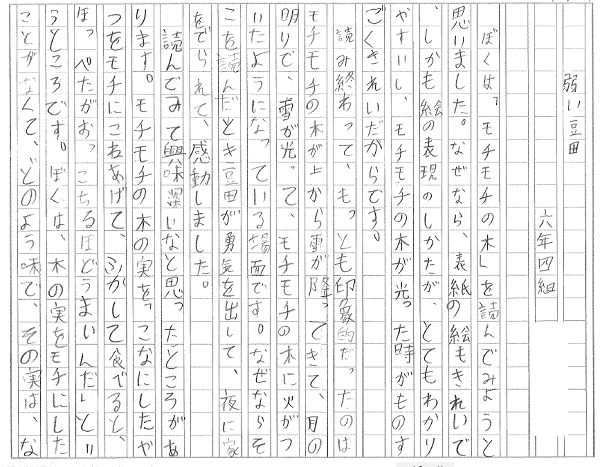 弱い豆田
六年四組
ぼくは「モチモチの木」を読んでみようと
思いました。なぜなら、表紙の絵もきれいで
、しかも絵の表現のしかたが、とてもわかり
やすいし、モチモチの木が光った時がものす
ごくきれいだからです。
読み終わって、もっとも印象的だったのは
モチモチの木が上から雪が降ってきて、月の
明りで、雪が光って、モチモチの木に火がつ
いたようになっている場面です。なぜならそ
こを読んだとき豆田が勇気を出して、夜に家
をでられて、感動しました。
読んでみて興味深いなと思ったところがあ
ります。モチモチの木の実を「こなにしたや
つをモチにこねあげて、ふかして食べると、
ほっぺたがおっこちるほどうまいんだ」とい
うところです。ぼくは、木の実をモチにした
ことがなくて、どのよう味で、その実は、な